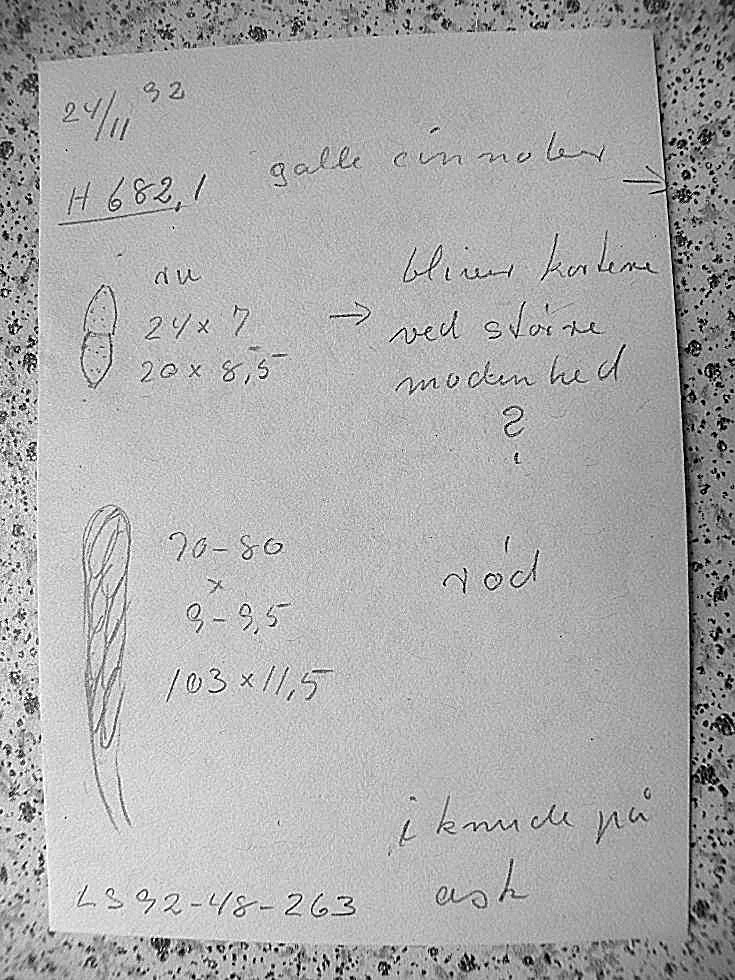 24/11 92
H 682,1 galle cinnober →
ru
24 x 7
20 x 8,5
→ bliver kortere
ved større
modenhed
?
70-80
x
9-9,5
103 x 11,5
rød
i knude på
ask
LS 92-48-263